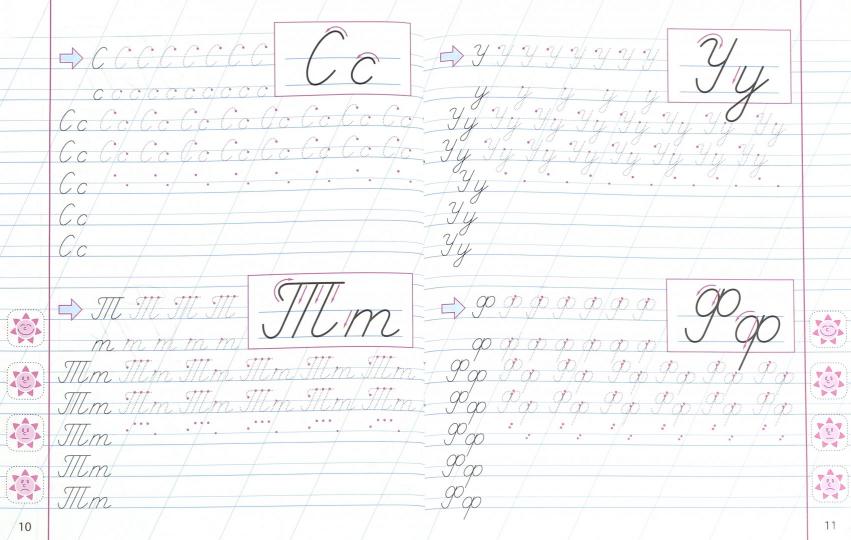 С С С С С С С С
Сс
с с с с с с с с с с
Сс Сс Сс Сс Сс Сс Сс Сс Сс
Сс Сс Сс Сс Сс Сс Сс Сс Сс
Сс
Сс
Сс
Т Т Т Т
Тт
т т т т т т
Тт Тт Тт Тт Тт Тт
Тт Тт Тт Тт Тт Тт
Тт
Тт
Тт
10
У У У У У У У У
Уу
у у у у у
Уу Уу Уу Уу Уу Уу Уу Уу
Уу Уу Уу Уу Уу Уу Уу Уу
Уу
Уу
Уу
Ф Ф Ф Ф Ф Ф Ф
Фф
ф ф ф ф ф ф ф
Фф Фф Фф Фф Фф Фф Фф
Фф Фф Фф Фф Фф Фф Фф
Фф
Фф
Фф
11